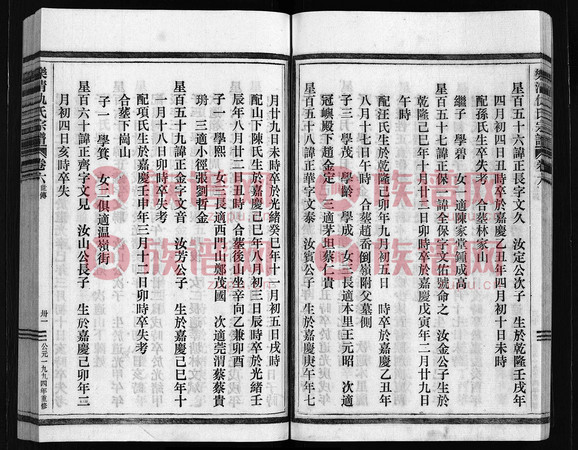 星百五十六諱正長字文久 汝定公次子 生於乾隆壬戌年
四月初四日未時卒於嘉慶乙丑年四月初十日未時
配孫氏生卒失考 合墓林家山
繼子 學碧 女一適陳家堂鍾成高
星百五十七諱正保一諱全保字文佑號命之 汝金公子生於
乾隆己巳年十月廿三日卯時卒於嘉慶戊寅年二月廿九日
午時
配汪氏生於乾隆己卯年九月初五日 時卒於嘉慶乙丑年
八月十七日午時 合墓趙岙倒嶺附父墓側
子三 學茂 學齡 學成 女三長適本里王元昭 次適
冠嶼殿下趙金定 三適茅坦蔡仁貴
星百五十八諱正華字文泰 汝賓公子 生於嘉慶庚午年七
月廿九日未時卒於光緒癸巳年十一月初五日戌時
配山下陳氏生於嘉慶己巳年八月初三日辰時卒於光緒壬
辰年八月廿二日丑時 合墓後山坐辛向乙兼卯酉
子一 學熙 女三長適西門山鄭茂國 次適莞渭蔡蔡貴
琇 三適小徑張劉哲金
星百五十九諱正金字文音 汝芳公子 生於嘉慶己巳年十
一月十八日卯時卒失考
配項氏生於嘉慶壬申年三月十二日卯時卒失考
合墓下崗山
子一 學賛 女二俱適温嶺街
星百六十諱正齊字文見 汝山公長子 生於嘉慶己卯年三
月初四日亥時卒失
樂清仇氏宗譜 卷六 世傳
卅一
公元一九九四年重修
族譜网